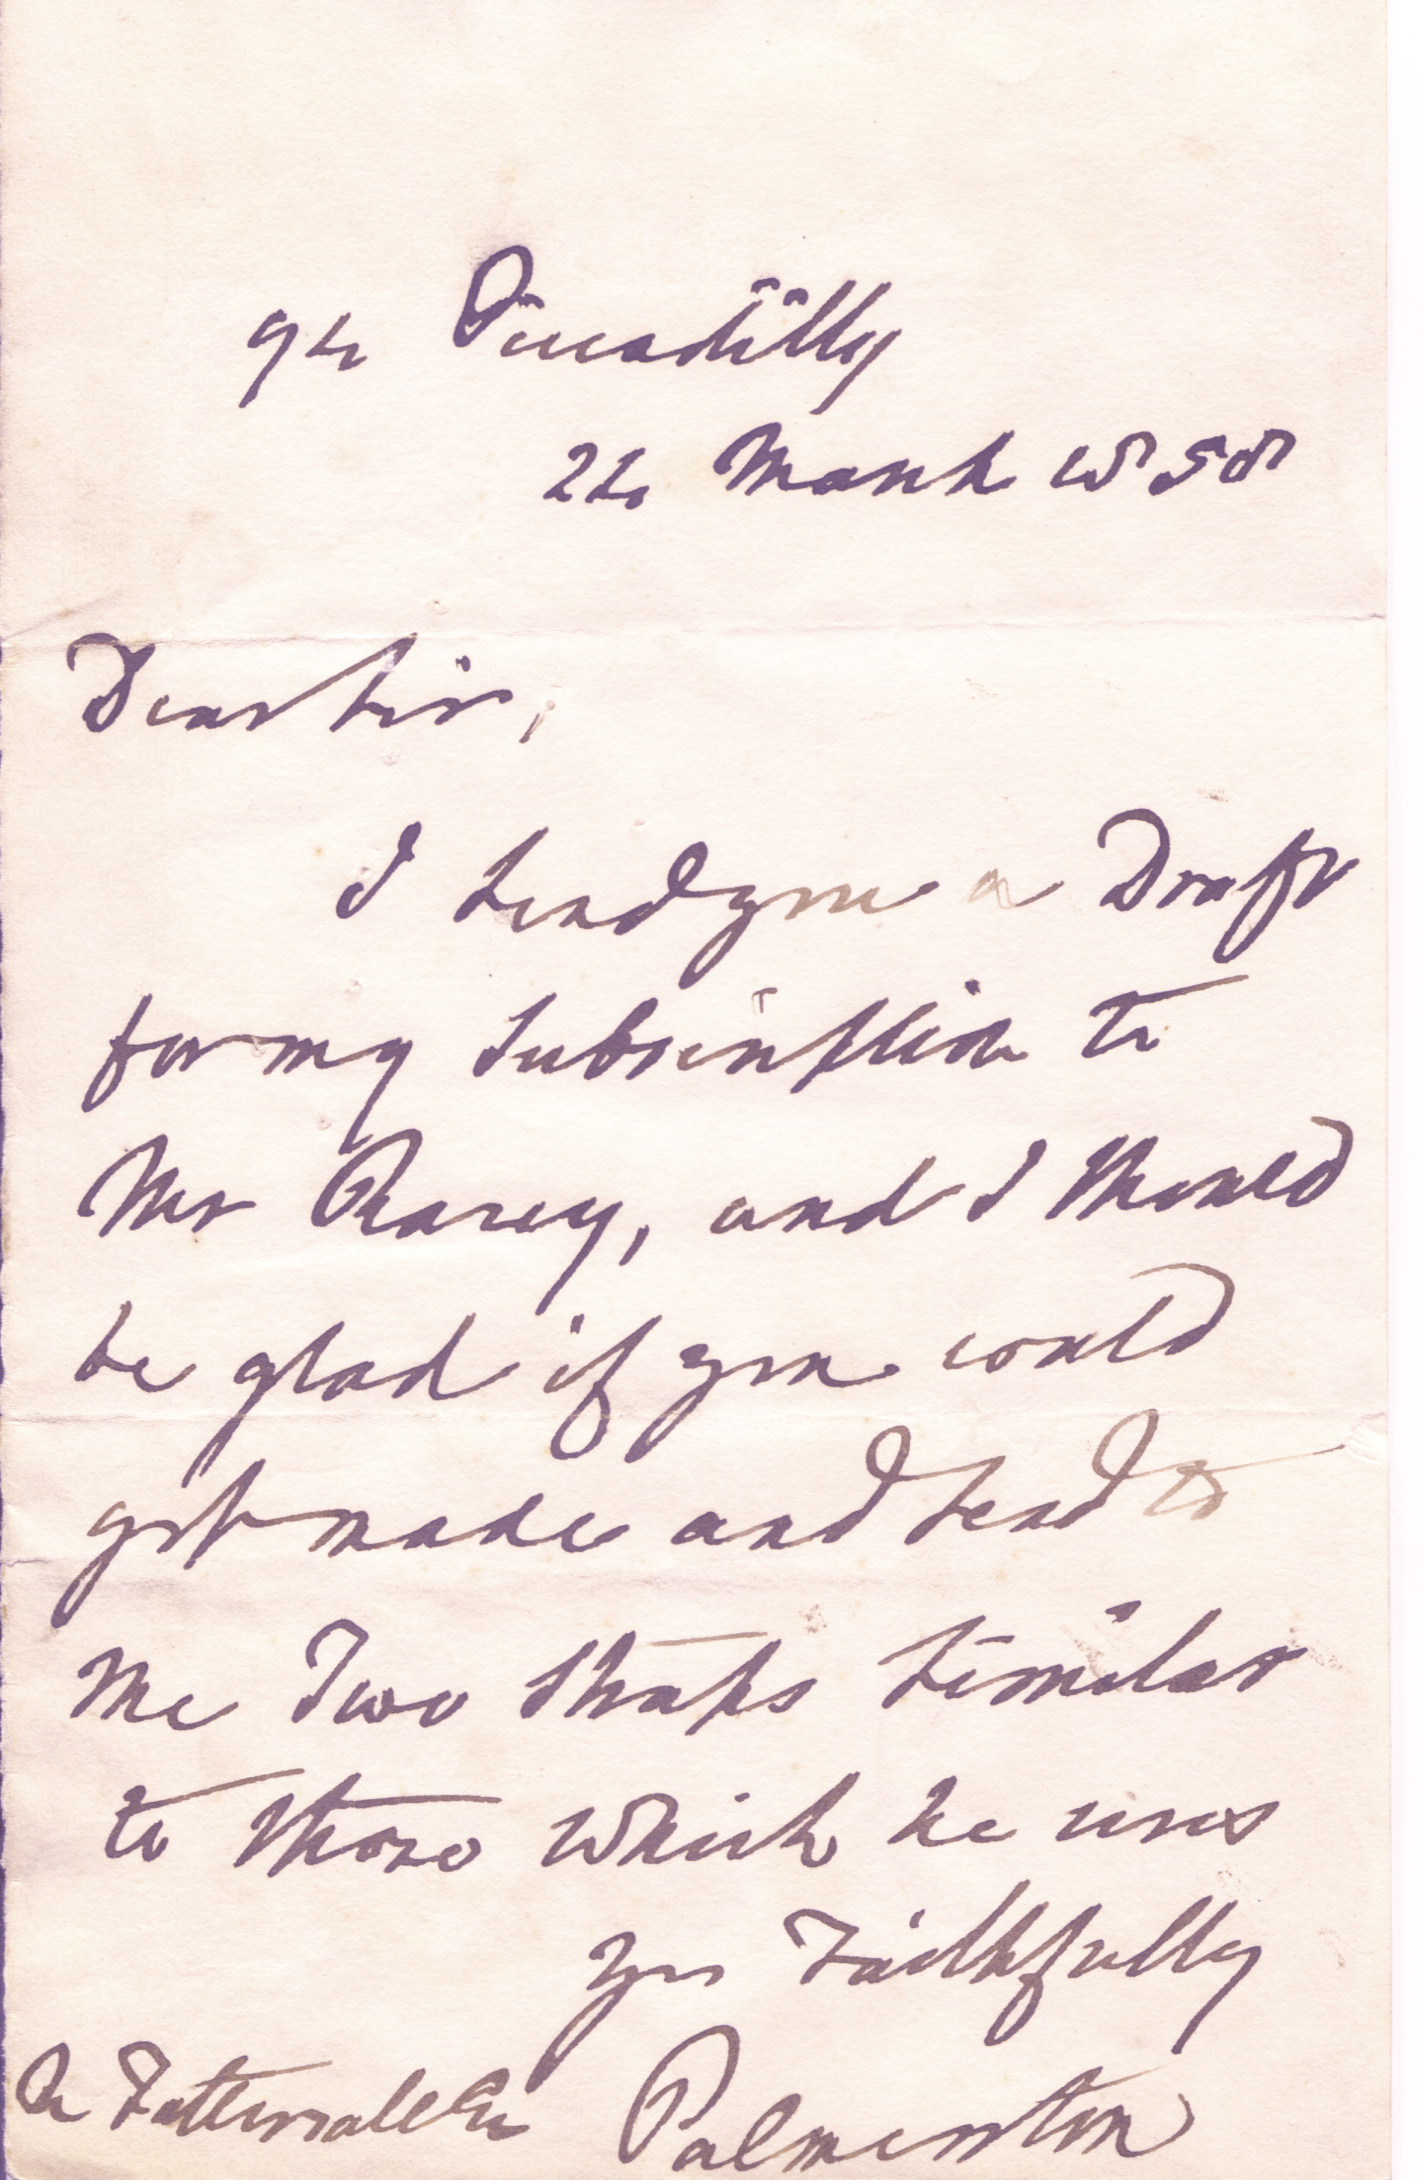 94 Piccadilly
24 March 1858
Dear Sir,
I send you a Draft
for my Subscription to
Mr Rarey, and I should
be glad if you could
get made and send to
me Two Straps similar
to those which he uses
Yrs Faithfully
R Tattersall Esq Palmerston